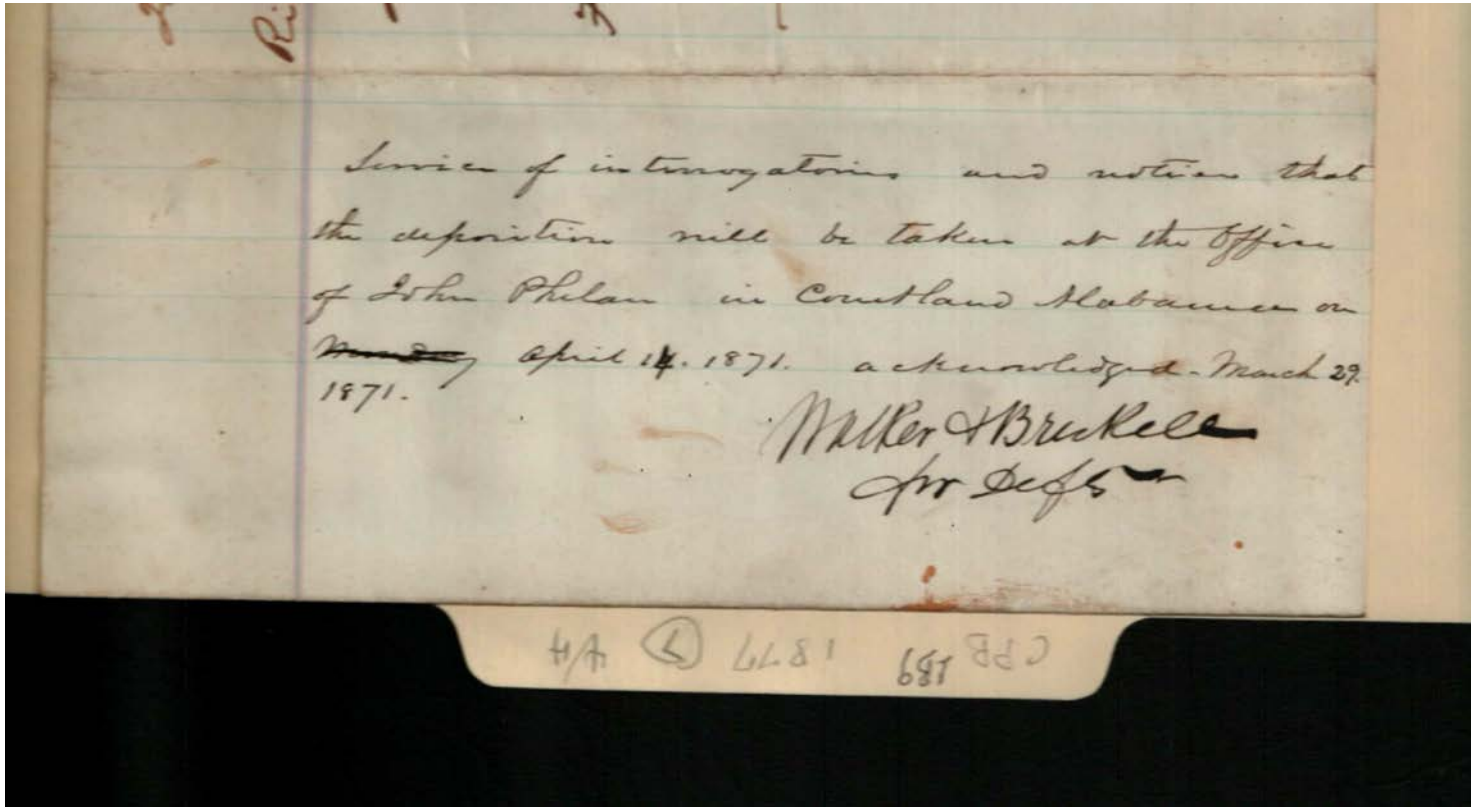 Ri
Service of interrogatories and notice that
the deposition will be taken at the Office
of John Phelan in Courtland Alabama on
Monday April 14. 1871. acknowledged. March 29.
1871.
Walker & Brickell
for Defts
CPB 189 1877 4/4